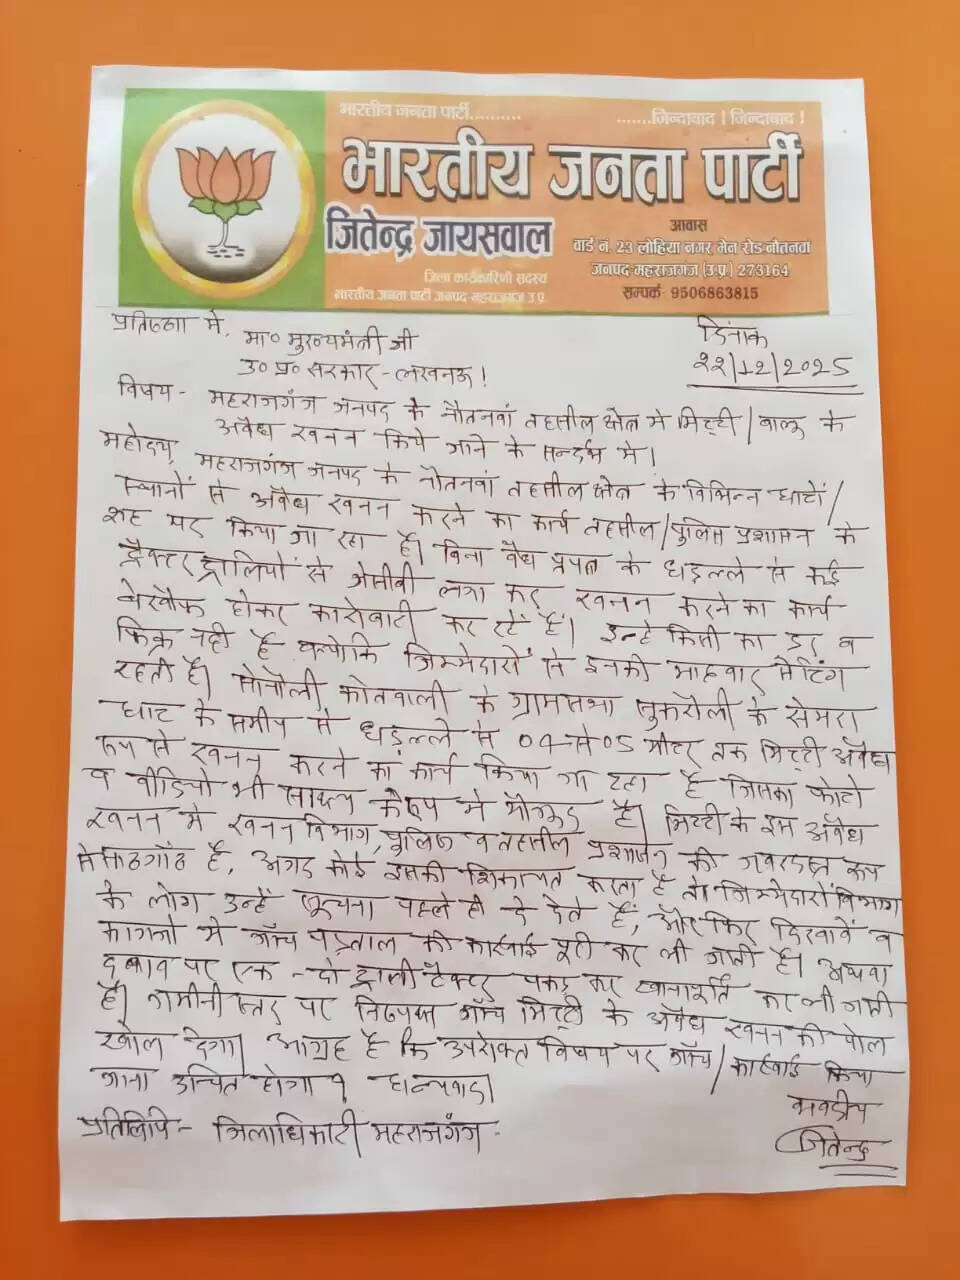 भारतीय जनता पार्टी.......... .......जिन्दाबाद ! जिन्दाबाद !
भारतीय जनता पार्टी
जितेन्द्र जायसवाल
जिला कार्यकारिणी सदस्य
भारतीय जनता पार्टी जनपद महराजगंज उ.प्र.
आवास
वार्ड नं. 23 लोहिया नगर मेन रोड नौतनवा
जनपद-महराजगंज (उ.प्र.) 273164
सम्पर्क- 9506863815
प्रतिष्ठा में,
मा० मुख्यमंत्री जी
उ० प्र० सरकार - लखनऊ !
दिनांक
22/12/2025
विषय - महराजगंज जनपद के नौतनवां तहसील क्षेत्र में मिट्टी/बालू के
अवैध खनन किये जाने के सन्दर्भ में।
महोदय, महराजगंज जनपद के नौतनवां तहसील क्षेत्र के विभिन्न घाटों/
स्थानों से अवैध खनन करने का कार्य तहसील/पुलिस प्रशासन के
शह पर किया जा रहा है। बिना वैध प्रपत्र के धड़ल्ले से कई
ट्रैक्टर ट्रालियों से जेसीबी लगा कर खनन करने का कार्य
बेखौफ होकर कारोबारी कर रहे हैं। इन्हे किसी का डर व
फिक्र नही है क्योकि जिम्मेदारों से इनकी माहवार सेटिंग
रहती है। सोनौली कोतवाली के ग्रामसभा सुकरौली के सेमरा
घाट के समीप से धड़ल्ले से 04 से 05 मीटर तक मिट्टी अवैध
रूप से खनन करने का कार्य किया जा रहा है जिसका फोटो
व वीडियो भी साक्ष्य के रूप मे मौजूद है। मिट्टी के इस अवैध
खनन मे खनन विभाग, पुलिस व तहसील प्रशासन की जबरदस्त रूप
से साठगाँठ है, अगर कोई इसकी शिकायत करता है तो जिम्मेदारों विभाग
के लोग उन्हें सूचना पहले ही दे देते हैं, और फिर दिखावे व
कागजो मे जाँच पड़ताल की कार्रवाई पूरी कर ली जाती है। अथवा
दबाव पर एक - दो ट्राली टैक्टर पकड़ कर खानापूर्ति कर ली जाती
है। जमीनी स्तर पर निष्पक्ष जाँच मिट्टी के अवैध खनन की पोल
खोल देगा। आग्रह है कि उपरोक्त विषय पर जाँच/कार्रवाई किया
जाना उचित होगा ? धन्यवाद।
भवदीय
जितेन्द्र
प्रतिलिपि - जिलाधिकारी महराजगंज -